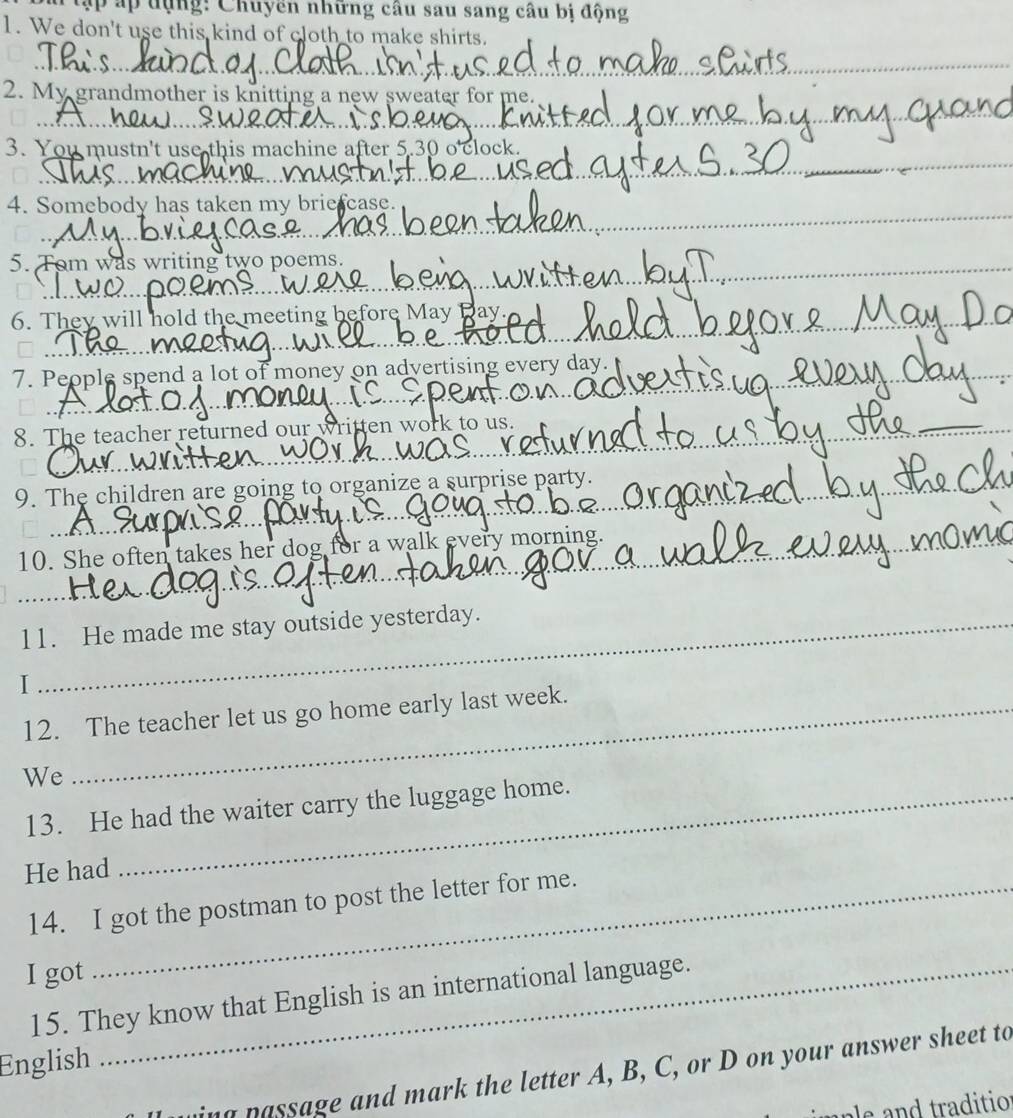 tập áp dụng: Chuyển những câu sau sang câu bị động
1. We don't use this kind of cloth to make shirts.
This kind of cloth isn't used to make shirts
2. My grandmother is knitting a new sweater for me.
A new sweater is being knitted for me by my grand
3. You mustn't use this machine after 5.30 o'clock.
This machine mustn't be used after 5.30
4. Somebody has taken my briefcase.
My briefcase has been taken
5. Tom was writing two poems.
Two poems were being written by T
6. They will hold the meeting before May Day.
The meeting will be held before May Da
7. People spend a lot of money on advertising every day.
A lot of money is spent on advertising every day
8. The teacher returned our written work to us.
Our written work was returned to us by the
9. The children are going to organize a surprise party.
A surprise party is going to be organized by the ch
10. She often takes her dog for a walk every morning.
Her dog is often taken for a walk every morni
11. He made me stay outside yesterday.
I
12. The teacher let us go home early last week.
We
13. He had the waiter carry the luggage home.
He had
14. I got the postman to post the letter for me.
I got
15. They know that English is an international language.
English
passage and mark the letter A, B, C, or D on your answer sheet to
and traditio